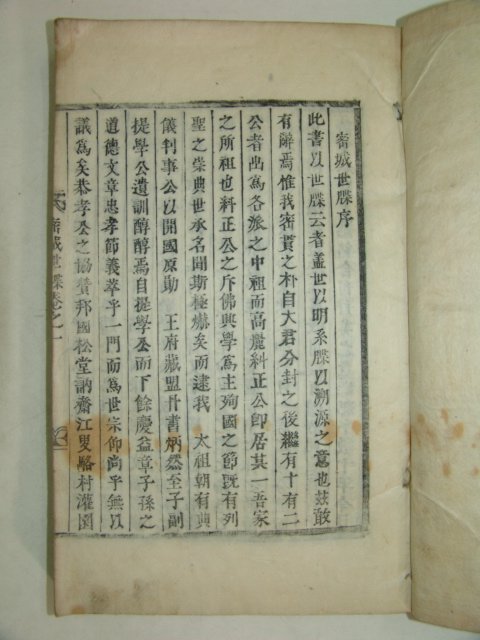 密城世牒序
此書以世牒云者盖世以明系牒以溯源之意也茲敢
有辭焉惟我密貫之朴自大君分封之後繼有十有二
公者出爲各派之中祖而高麗糾正公卽居其一吾家
之所祖也糾正公之斥佛興學爲主殉國之節旣有列
聖之崇典世承名聞斯極爀矣而逮我 太祖朝有典
儀判事公以開國原勛 王府藏盟丹書炳然至子副
提學公遺訓醇醇焉自提學公而下餘慶益章子孫之
道德文章忠孝節義萃乎一門而爲世宗仰尚乎無以
議爲矣恭孝公之協贊邦國松堂訥齋江叟駱村灌園
密城世牒卷之一